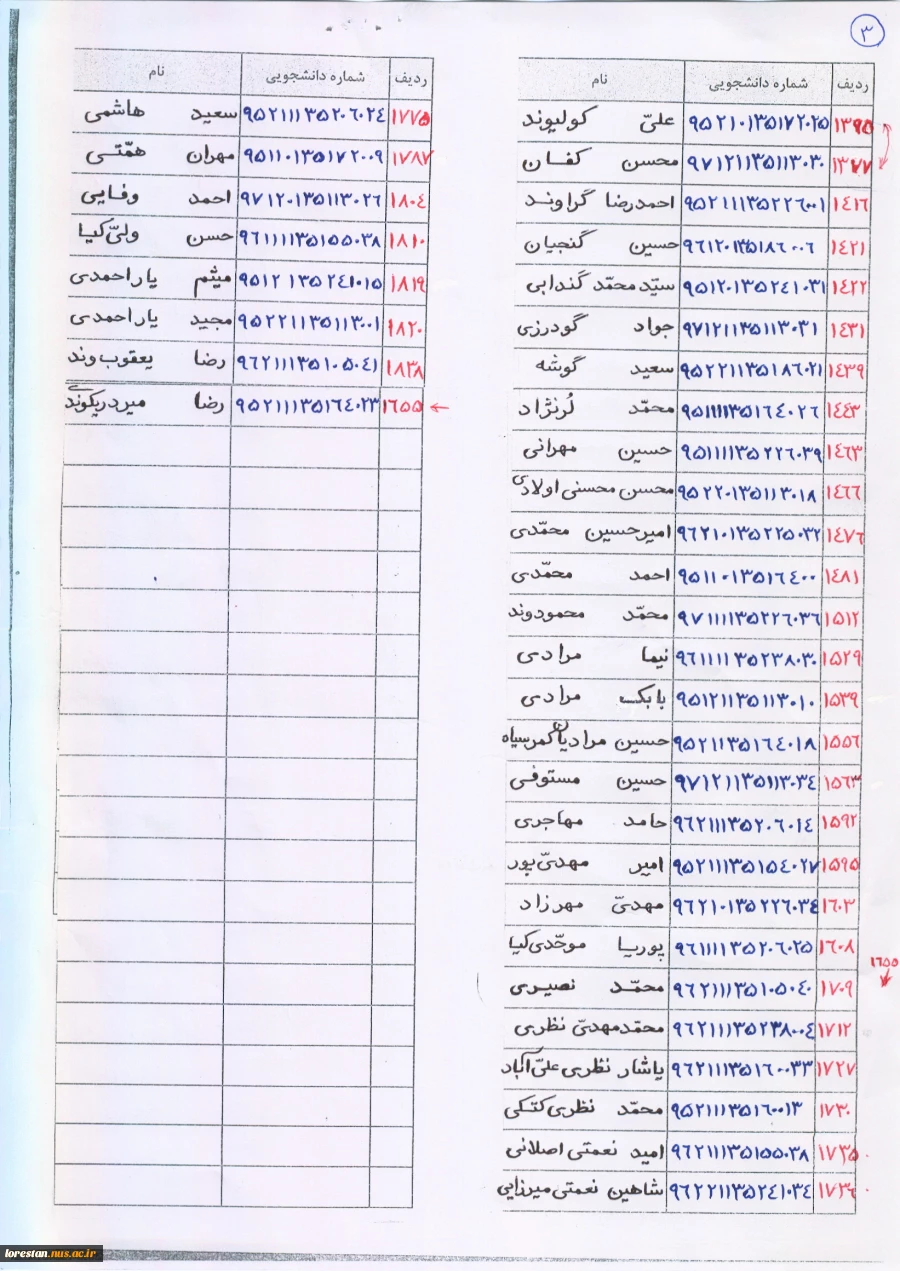 ۳
ردیف شماره دانشجویی نام
۱۳۹۵ ۹۵۲۱۰۱۳۵۱۷۲۰۲۵ علیّ کولیوند
۱۳۷۷ ۹۷۱۲۱۱۳۵۱۱۳۰۳۰ محسن کفان
۱۴۱۶ ۹۵۲۱۱۱۳۵۲۲۶۰۰۱ احمدرضا گراوند
۱۴۲۱ ۹۶۱۲۰۱۳۵۱۸۶۰۰۶ حسین گنجیان
۱۴۲۲ ۹۵۱۲۰۱۳۵۲۴۱۰۳۱ سیّد محمّد گندابی
۱۴۳۱ ۹۷۱۲۱۱۳۵۱۱۳۰۳۱ جواد گودرزی
۱۴۳۹ ۹۵۲۲۱۱۳۵۱۸۶۰۲۱ سعید گوشه
۱۴۴۳ ۹۵۱۱۱۱۳۵۱۶۴۰۲۶ محمّد لُرنژاد
۱۴۶۳ ۹۵۱۱۱۱۳۵۲۲۶۰۳۹ حسین مهرانی
۱۴۶۶ ۹۵۲۲۰۱۳۵۱۱۳۰۱۸ محسن محسنی اولادی
۱۴۷۶ ۹۶۲۱۰۱۳۵۲۲۵۰۳۲ امیرحسین محمّدی
۱۴۸۱ ۹۵۱۱۰۱۳۵۱۶۴۰۰ احمد محمّدی
۱۵۱۲ ۹۷۱۱۱۱۳۵۲۲۶۰۳۶ محمّد محمودوند
۱۵۲۹ ۹۶۱۱۱۱۳۵۲۳۸۰۳۰ نیما مرادی
۱۵۳۹ ۹۵۱۲۱۱۳۵۱۱۳۰۱۰ بابک مرادی
۱۵۵۶ ۹۵۲۱۱۱۳۵۱۶۴۰۱۸ حسین مرادیان کمرسیاه
۱۵۶۳ ۹۷۱۲۱۱۳۵۱۱۳۰۳۴ حسین مستوفی
۱۵۹۲ ۹۶۲۱۱۱۳۵۲۰۶۰۱۴ حامد مهاجری
۱۵۹۵ ۹۵۲۱۱۱۳۵۱۵۴۰۲۷ امیر مهدیّ پور
۱۶۰۳ ۹۶۲۱۰۱۳۵۲۲۶۰۳۴ مهدیّ مهرزاد
۱۶۰۸ ۹۶۱۱۱۱۳۵۲۰۶۰۲۵ پوریا موحّدی کیا
۱۶۵۵
۱۷۰۹ ۹۶۲۱۱۱۳۵۱۰۵۰۴۰ محمّد نصیری
۱۷۱۲ ۹۶۲۱۱۱۳۵۲۳۸۰۰۴ محمّدمهدیّ نظری
۱۷۲۷ ۹۶۲۱۱۱۳۵۱۶۰۰۳۳ یاشار نظری علیّ آباد
۱۷۳۰ ۹۵۲۱۱۱۳۵۱۶۰۰۱۳ محمّد نظری کتکی
۱۷۳۵ ۹۶۲۱۱۱۳۵۱۵۵۰۳۸ امید نعمتی اصلانی
۱۷۳۶ ۹۶۲۲۱۱۳۵۲۴۱۰۳۴ شاهین نعمتی میرزایی
ردیف شماره دانشجویی نام
۱۷۷۵ ۹۵۲۱۱۱۳۵۲۰۶۰۲۴ سعید هاشمی
۱۷۸۷ ۹۵۱۱۰۱۳۵۱۷۲۰۰۹ مهران همّتی
۱۸۰۴ ۹۷۱۲۰۱۳۵۱۱۳۰۲۶ احمد وفایی
۱۸۱۰ ۹۶۱۱۱۱۳۵۱۵۵۰۳۸ حسن ولیّ کیا
۱۸۱۹ ۹۵۱۲۱۳۵۲۴۱۰۱۵ میثم یاراحمدی
۱۸۲۰ ۹۵۲۲۱۱۳۵۱۱۳۰۰۱ مجید یاراحمدی
۱۸۳۸ ۹۶۲۱۱۱۳۵۱۰۵۰۴۱ رضا یعقوب وند
۱۶۵۵ ۹۵۲۱۱۱۳۵۱۶۴۰۲۳ رضا میردریکوندی
lorestan.nus.ac.ir